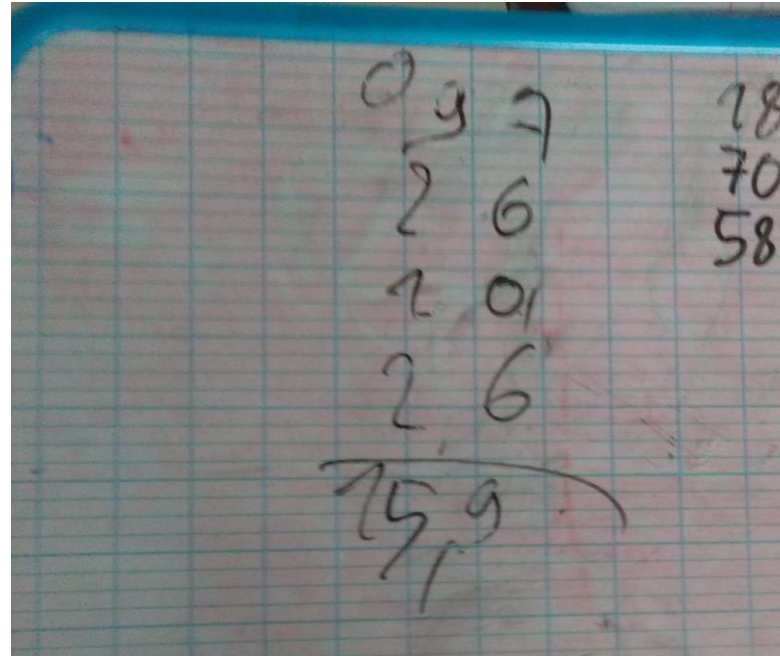 0 9 7
2 6
1 0
2 6
15,9
18
70
58